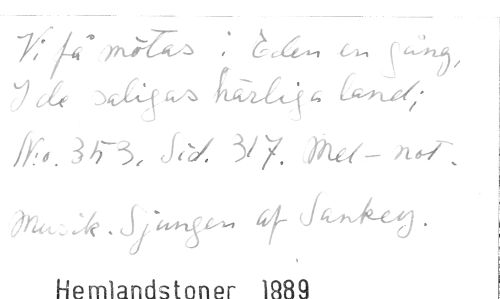 Vi få mötas i Eden en gång,
I de saligas härliga land;
N:o. 353. Sid. 317. Mel-not.
Musik. Sjungen af Sankey.
Hemlandstoner 1889